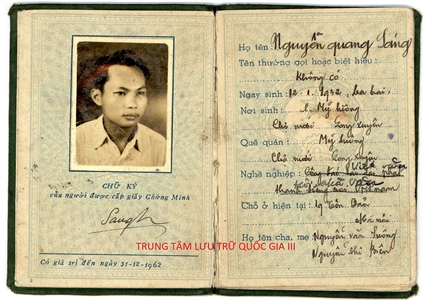 CHỮ KÝ
của người được cấp giấy Chứng Minh
Sang
TRUNG TÂM LƯU TRỮ QUỐC GIA III
Có giá trị đến ngày 31-12-1962
Họ tên: Nguyễn quang Sáng
Tên thường gọi hoặc biệt hiệu:
Không có
Ngày sinh: 12.1.1932
Nơi sinh: Mỹ luông
Chợ mới Long xuyên
Quê quán: Mỹ luông
Chợ mới Long xuyên
Nghề nghiệp:
Việt nam
Chỗ ở hiện tại:
Hà nội
Họ tên cha, mẹ: Nguyễn văn
Nguyễn thị